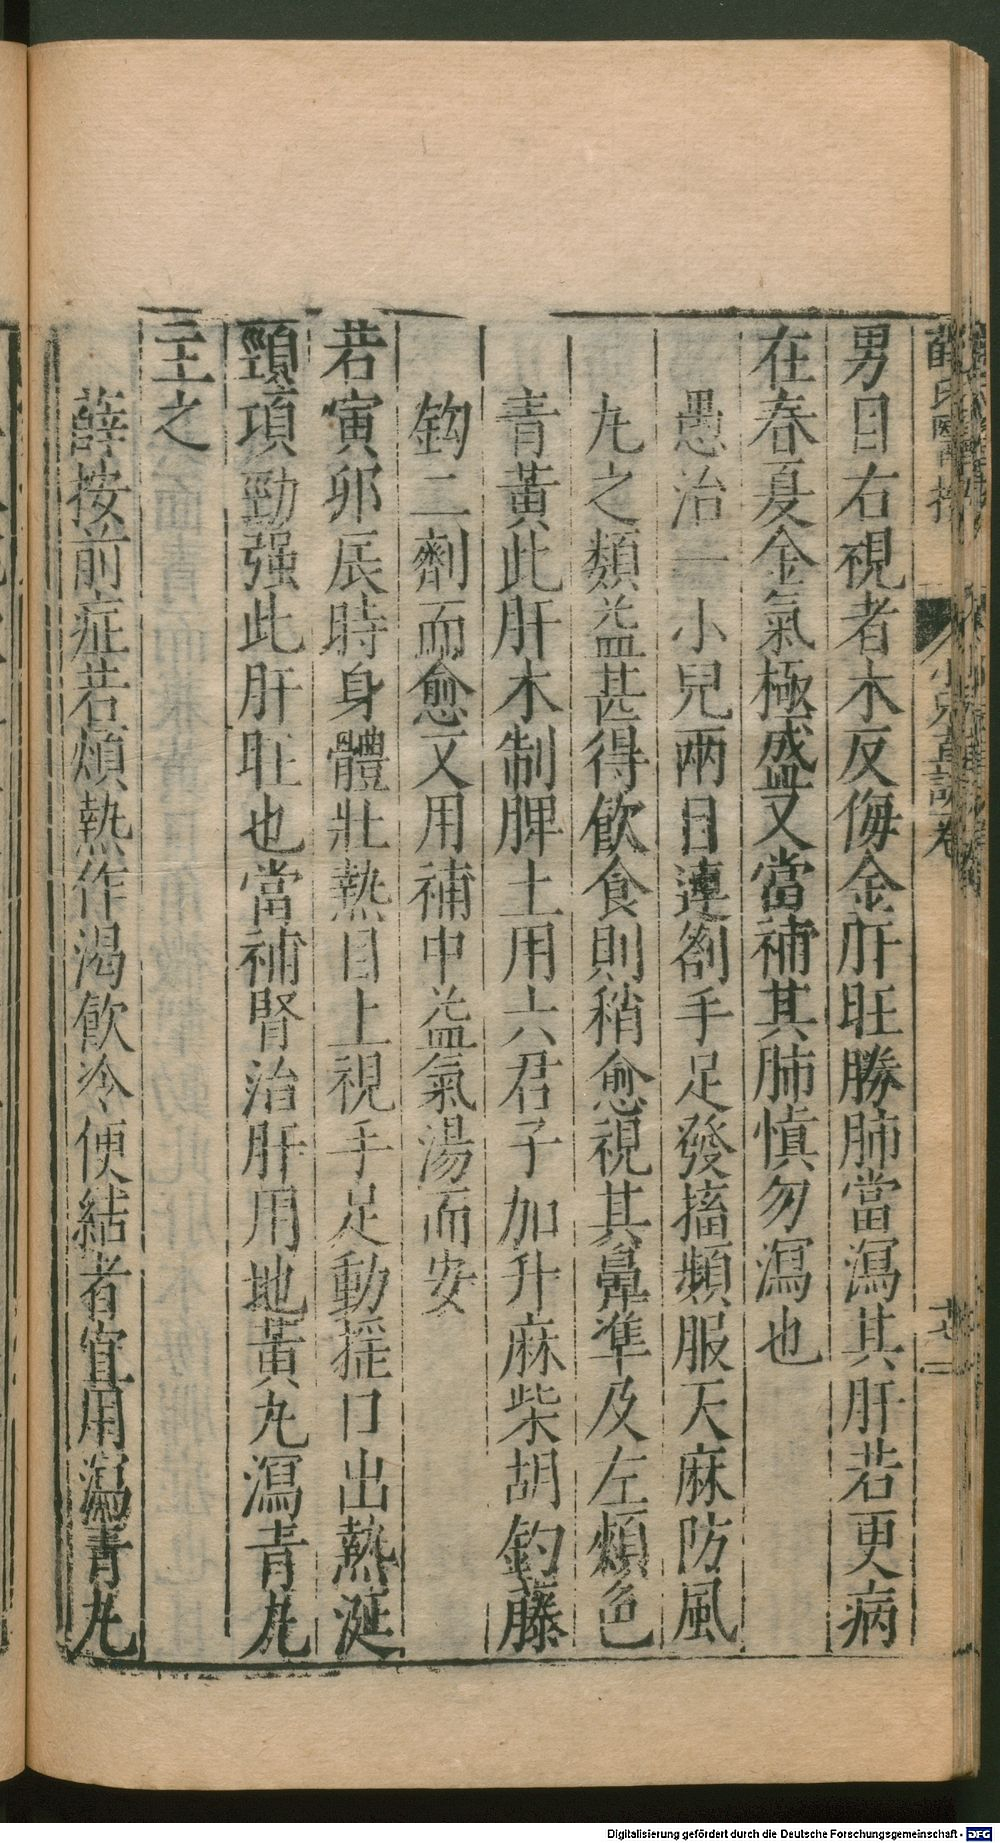 薛氏醫按 小兒直訣卷 十七
男目右視者木反侮金肝旺勝肺當瀉其肝若更病
在春夏金氣極盛又當補其肺慎勿瀉也
愚治一小兒兩目連劄手足發搐頻服天麻防風
丸之類益甚得飲食則稍愈視其鼻準及左頰色
青黃此肝木制脾土用六君子加升麻柴胡鈎藤
鈎二劑而愈又用補中益氣湯而安
若寅卯辰時身體壯熱目上視手足動揺口出熱涎
頸項勁强此肝旺也當補腎治肝用地黃丸瀉青丸
主之
薛按前症若煩熱作渴飲冷便結者宜用瀉青丸
Digitalisierung gefördert durch die Deutsche Forschungsgemeinschaft - DFG